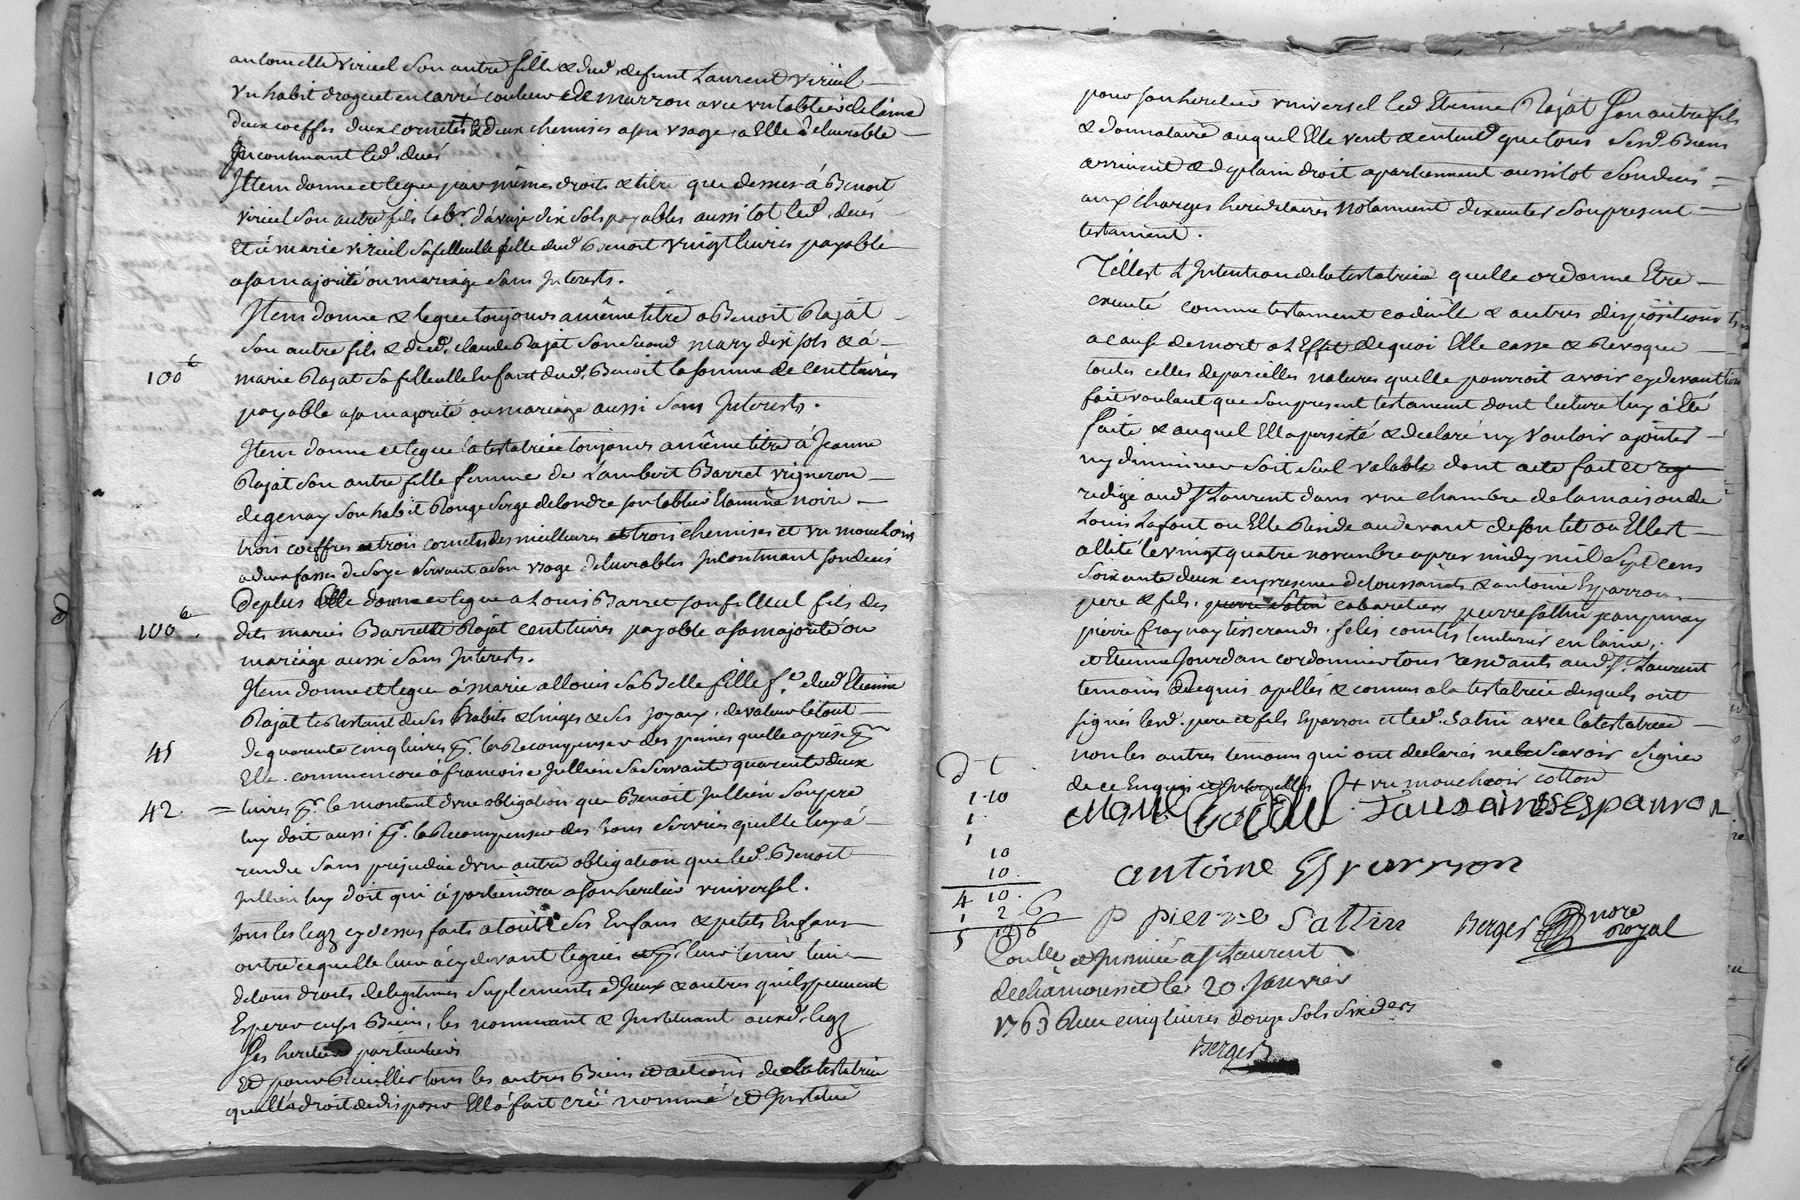 antoinette viricel son autre fille & dud. defunt Laurent viricel
vn habit droguet en carré couleur de marron avec vn tablier de laine
deux coeffes deux cornetes & deux chemises a son vsage, a Elle delivrable
Incontinant led. deces
Item donne et legue par mêmes droits & titre que dessus à Benoit
viricel son autre fils labr. d'avaize dix sols payables aussitot led. deces
Et à marie viricel sa filleulle fille dud. Benoit vingt livres payable
a sa majorité ou mariage sans Interests.
Item donne & legue toujours a même titre a Benoit Rajat
son autre fils & dud. claude Rajat son second mary dix sols & à
100lt
marie Rajat sa filleulle Enfant dud. Benoit la somme de cent livres
payable a sa majorité ou mariage aussi sans Interests.
Item donne et legue la testatrice toujours a même titre à Jeanne
Rajat son autre fille femme de Lambert Barret vigneron
de genay son habit Rouge serge de londre son tablier Etamine noire
trois coeffes trois cornetes des meilleures et trois chemises et vn mouchoir
a deux fasses de soye servant a son vsage delivrables Incontinant son deces
De plus Elle donne et legue a Louis Barret son filleul fils des
100lt.
dits mariés Barret & Rajat cent livres payable a sa majorité ou
mariage aussi sans Interests.
Item donne et legue à marie allouis sa Belle fille fe. dud. Etienne
Rajat le Restant de ses habits & linges & ses joyaux, de valeur le tout
45
de quarante cinq livres pr. la Recompenser des peines qu'elle a prise pr
Elle. comm'encore à francoise Jullien sa servante quarente deux
42. =
livres pr. le montant d'vne obligation que Benoit Jullien son pere
luy doit aussi pr. la Recompenser des bons services qu'elle luy à
rendu sans prejudice d'vne autre obligation que led. Benoit
Jullien luy doit qui apartiendra a son heritier vniversel.
tous les legz cy dessus faits a touts ses Enfans & petits Enfans
outre ce quelle leur à cy devant legués et pr. leur tenir lieu
de tous droits de legitimes suplements d'Iceux & autres qu'ils peuvent
Esperer en ses Biens, les nommant & Instituant auxd. legz
ses heritiers particuliers
Et pour Recuillir tous les autres Biens et actions de la testatrice
quelle à droit de disposer Elle à fait créé nommé et Institué
pour son heritier vniversel led. Etienne Rajat son autre fils
& donnataire auquel Elle veut & entend que tous sesd. Biens
arrivent & de plain droit apartiennent aussitot son deces
aux charges hereditaires notamment d'executer son present
testament.
Tell'est L'Intention de la testatrice quelle ordonne Etre
executé comme testament codicille & autres dispositions
a cause de mort a L'Effet de quoi Elle casse & Revoque
toutes celles de pareilles natures quelle pourroit avoir cy devant
fait voulant que son present testament dont lecture luy à Eté
faite & auquel Ell'a persisté & declaré n'y vouloir ajouter
ny diminuer soit seul valable dont acte fait et
redigé aud. St Laurent dans vne chambre de la maison de
Louis Lafont ou Elle Reside au devant de son lit ou Ell'est
allité le vingt quatre novembre apres midy mil sept cens
soixante deux en presence de toussaints & antoine Esparron
pere & fils, cabaretiers pierre sattin
pierre fraynay tisserands, felix comtis en laine,
et Etienne Jourdan cordonnier tous residants aud. St. Laurent
temoins Requis apellés & connus a la testatrice desquels ont
signés lesd. pere et fils Esparron et led. Satin avec la testatrice
non les autres temoins qui ont declarés ne scavoir signer
de ce Enquis et Interpellés + vn mouchoir cotton
1·10
1·
1
10
10·
4 10·
1 2 6
5 12 6
Toussaints Esparron
antoine Esparron
P pierre Sattin
Berger nore royal
Conllé et Insinué a St Laurent
de chamousset le 20 Janvier
1763 Reçu cinq livres douze sols six ders
Berger